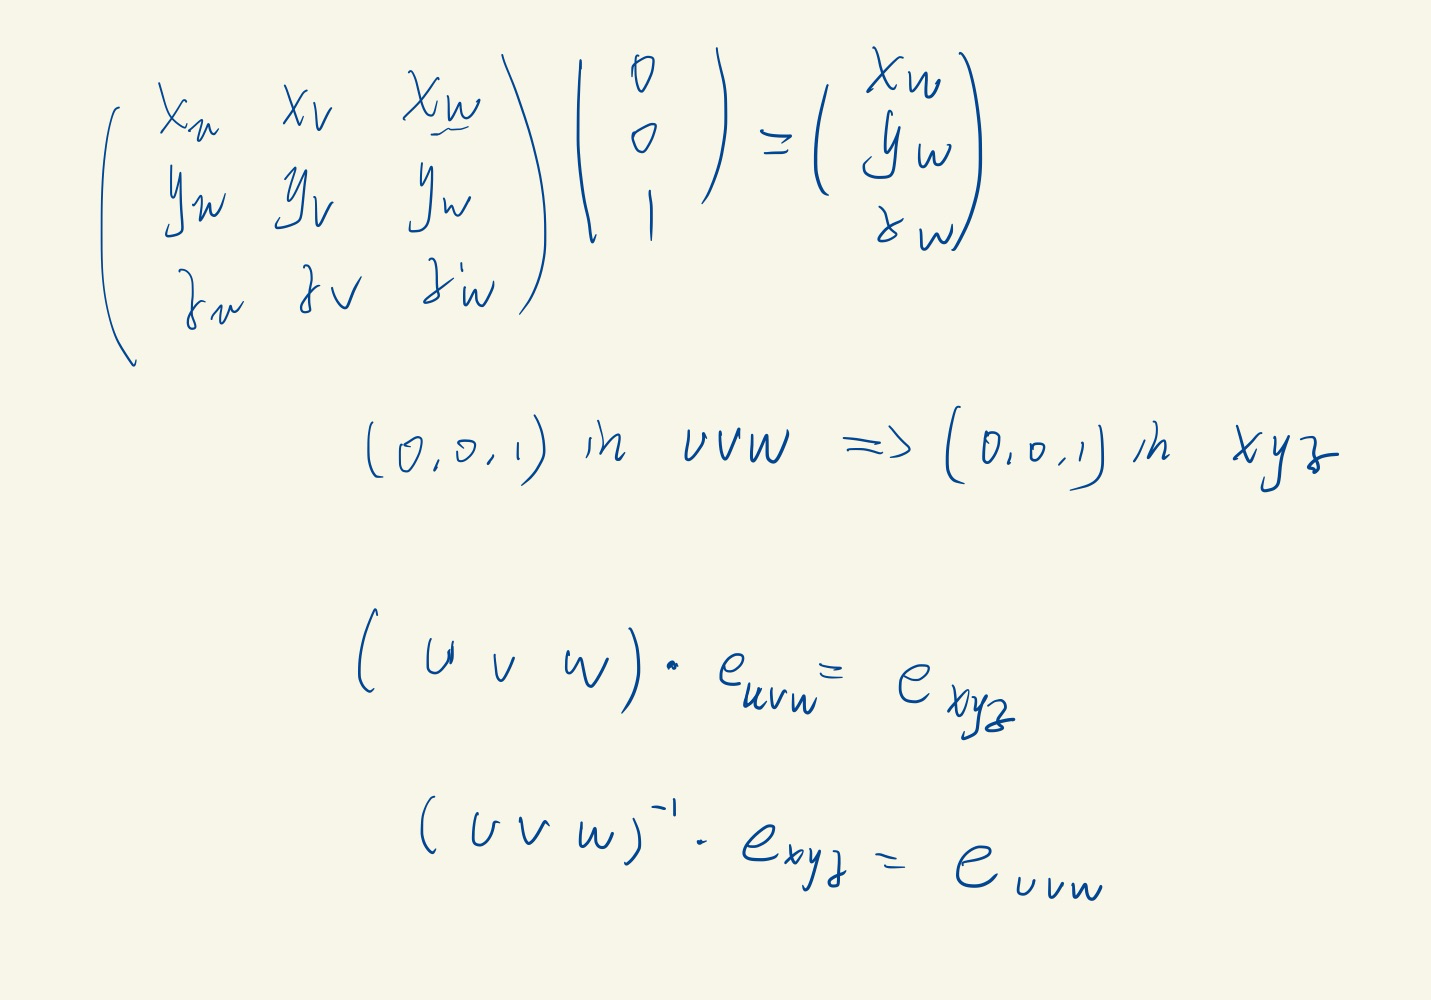 ( x_u x_v x_w ) ( 0 ) = ( x_w )
( y_u y_v y_w ) ( 0 ) ( y_w )
( z_u z_v z_w ) ( 1 ) ( z_w )
(0,0,1) in uvw => (0,0,1) in xyz
( u v w ) · e_uvw = e_xyz
( u v w )^-1 · e_xyz = e_uvw